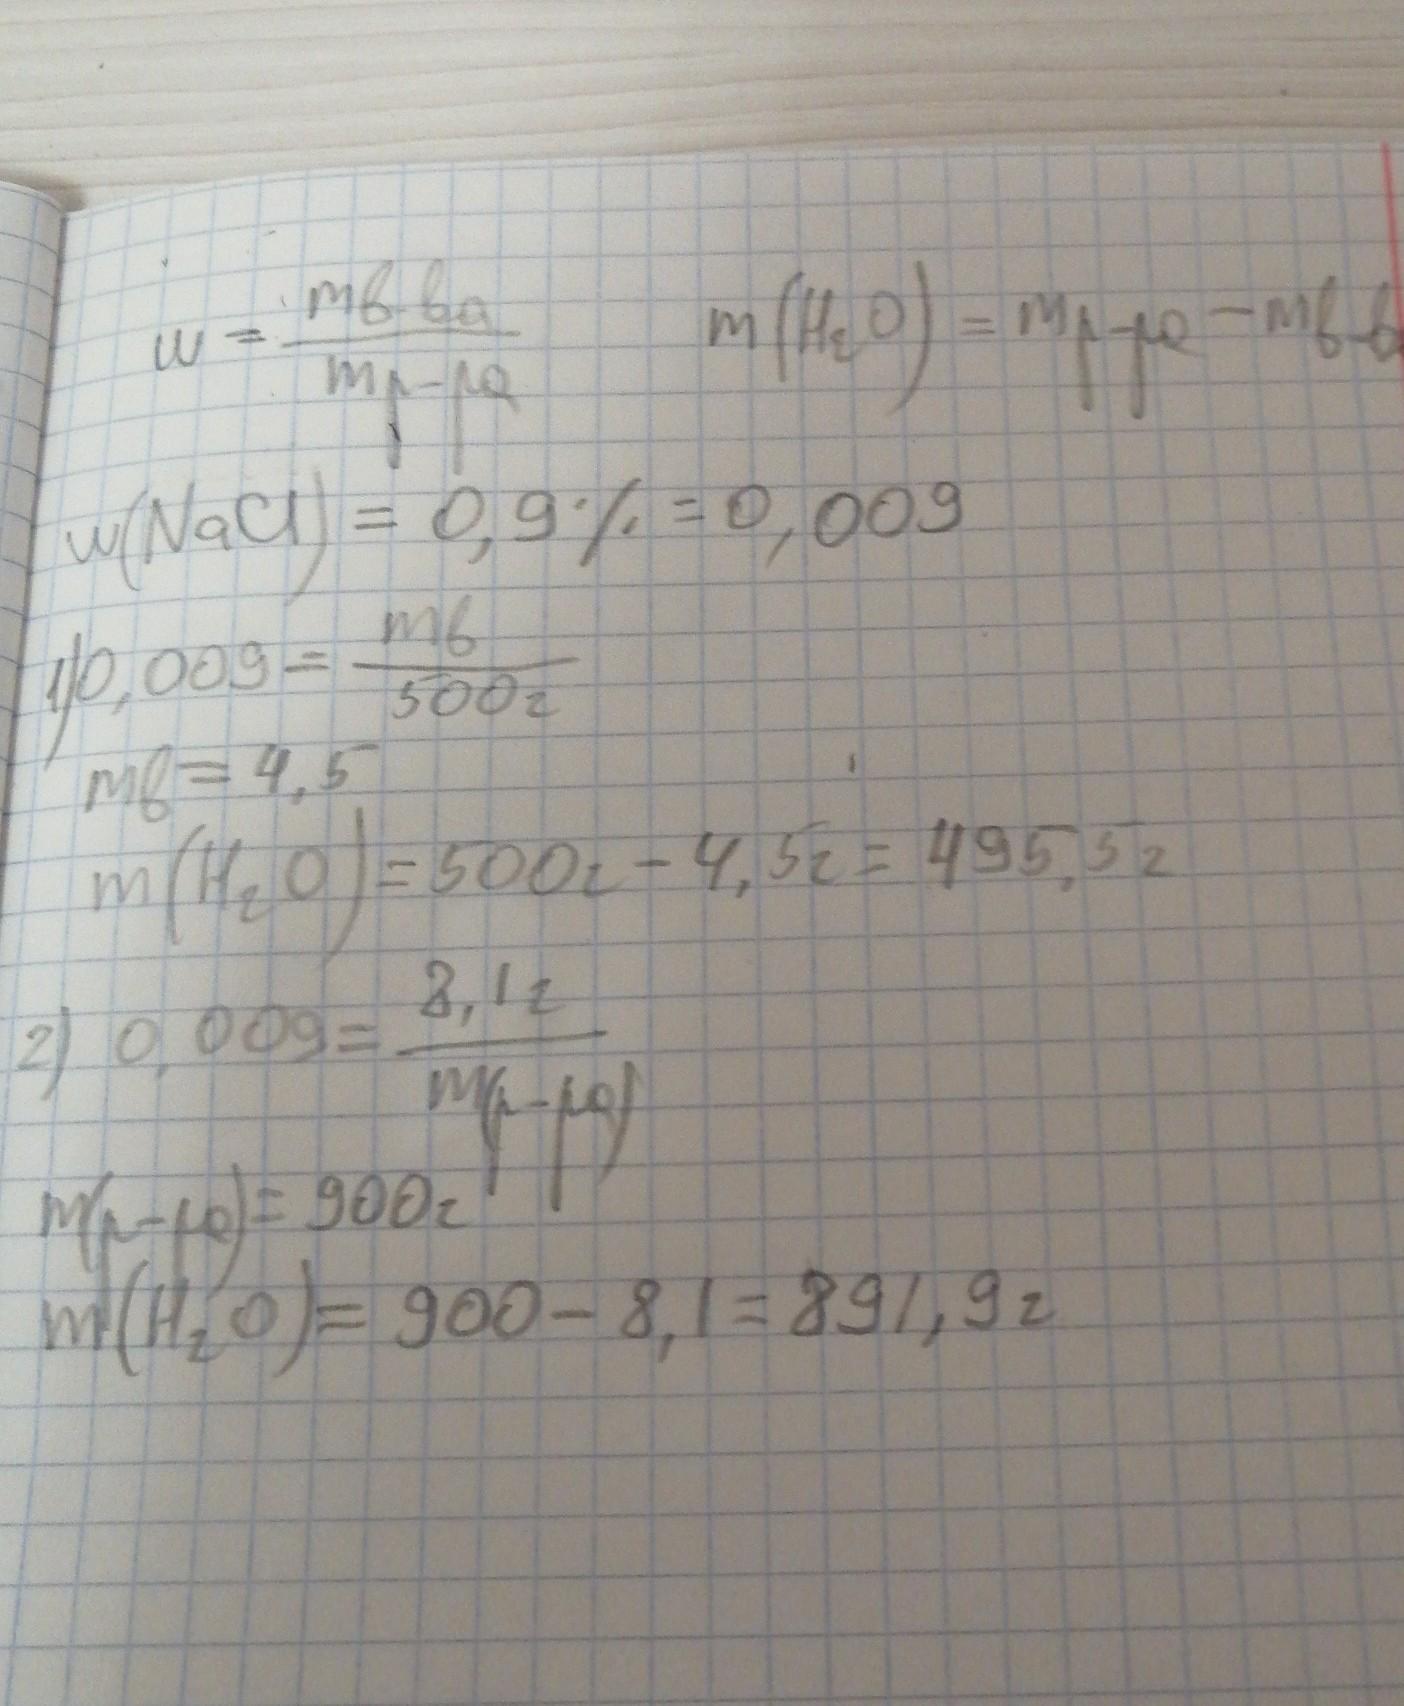 w = mв-ва / mр-ра    m(H₂O) = mр-ра − mв-в
w(NaCl) = 0,9% = 0,009
1) 0,009 = mв / 500г
mв = 4,5
m(H₂O) = 500г − 4,5г = 495,5г
2) 0,009 = 8,1г / m(р-ра)
m(р-ра) = 900г
m(H₂O) = 900 − 8,1 = 891,9г